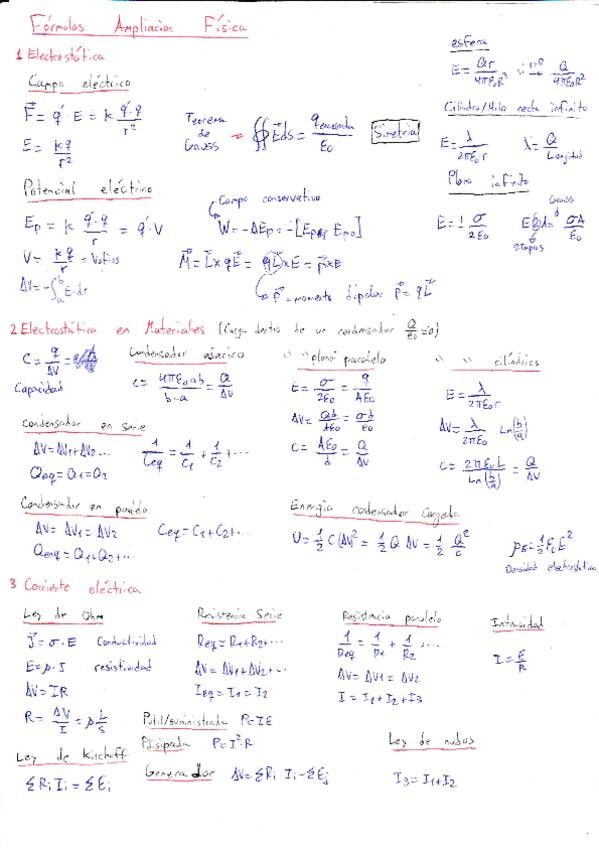 Fórmulas Ampliacion Física
1 Electrostática
Campo eléctrico
F⃗ = q' · E = k q'·q / r²
E = kq / r²
Teorema de Gauss ⇒ ∯ E⃗ds = q encerrada / ε0
Simetria
esfera
E = Qr / 4πε0R³
Q / 4πε0R²
Cilindro/Hilo recto infinito
E = λ / 2πε0r
λ = Q / Longitud
Plano infinito
E = σ / 2ε0
Gauss
σA / ε0
2tapas
Potencial eléctrico
Ep = k q'·q / r = q'·V
V = kq / r = Voltios
ΔV = -∫ E·dr
Campo conservativo
W = -ΔEp = -[
M⃗ = L⃗ x qE⃗ = qL⃗ x E = p⃗ x E
p⃗ = momento dipolar p⃗ = qL⃗
2 Electrostática en Materiales (Carga dentro de un condensador Q/ε0 = 0)
C = q / ΔV
Capacidad
Condensador esférico
C = 4πε0ab / b-a = Q / ΔV
" " plano paralelo
E = σ / 2ε0 = q / Aε0
ΔV = Qd / Aε0 = σd / ε0
C = Aε0 / d = Q / ΔV
" " cilíndrico
E = λ / 2πε0r
ΔV = λ / 2πε0 Ln(b/a)
C = 2πε0L / Ln(b/a) = Q / ΔV
Condensador en serie
ΔV = ΔV1 + ΔV2 ...
Qeq = Q1 = Q2
1/Ceq = 1/C1 + 1/C2 + ...
Condensador en paralelo
ΔV = ΔV1 = ΔV2
Ceq = C1 + C2 + ...
Qeq = Q1 + Q2 + ...
Energía condensador Cargado
U = 1/2 C(ΔV)² = 1/2 Q ΔV = 1/2 Q²/C
ρE = 1/2 ε0E²
Densidad electrostática
3 Corriente eléctrica
Ley de Ohm
J⃗ = σ · E Conductividad
E = ρ · J resistividad
ΔV = IR
R = ΔV / I = ρ L/S
Resistencia Serie
Req = R1 + R2 + ...
ΔV = ΔV1 + ΔV2 + ...
Ieq = I1 = I2
Resistencia paralelo
1/Req = 1/R1 + 1/R2 + ...
ΔV = ΔV1 = ΔV2
I = I1 + I2 + I3
Intensidad
I = E / R
Pot/suministrada P = IE
P disipada P = I²·R
Ley de Kirchoff
ΣRi Ii = ΣEi
Generador ΔV = ΣRi Ii - ΣEj
Ley de nudos
I3 = I1 + I2